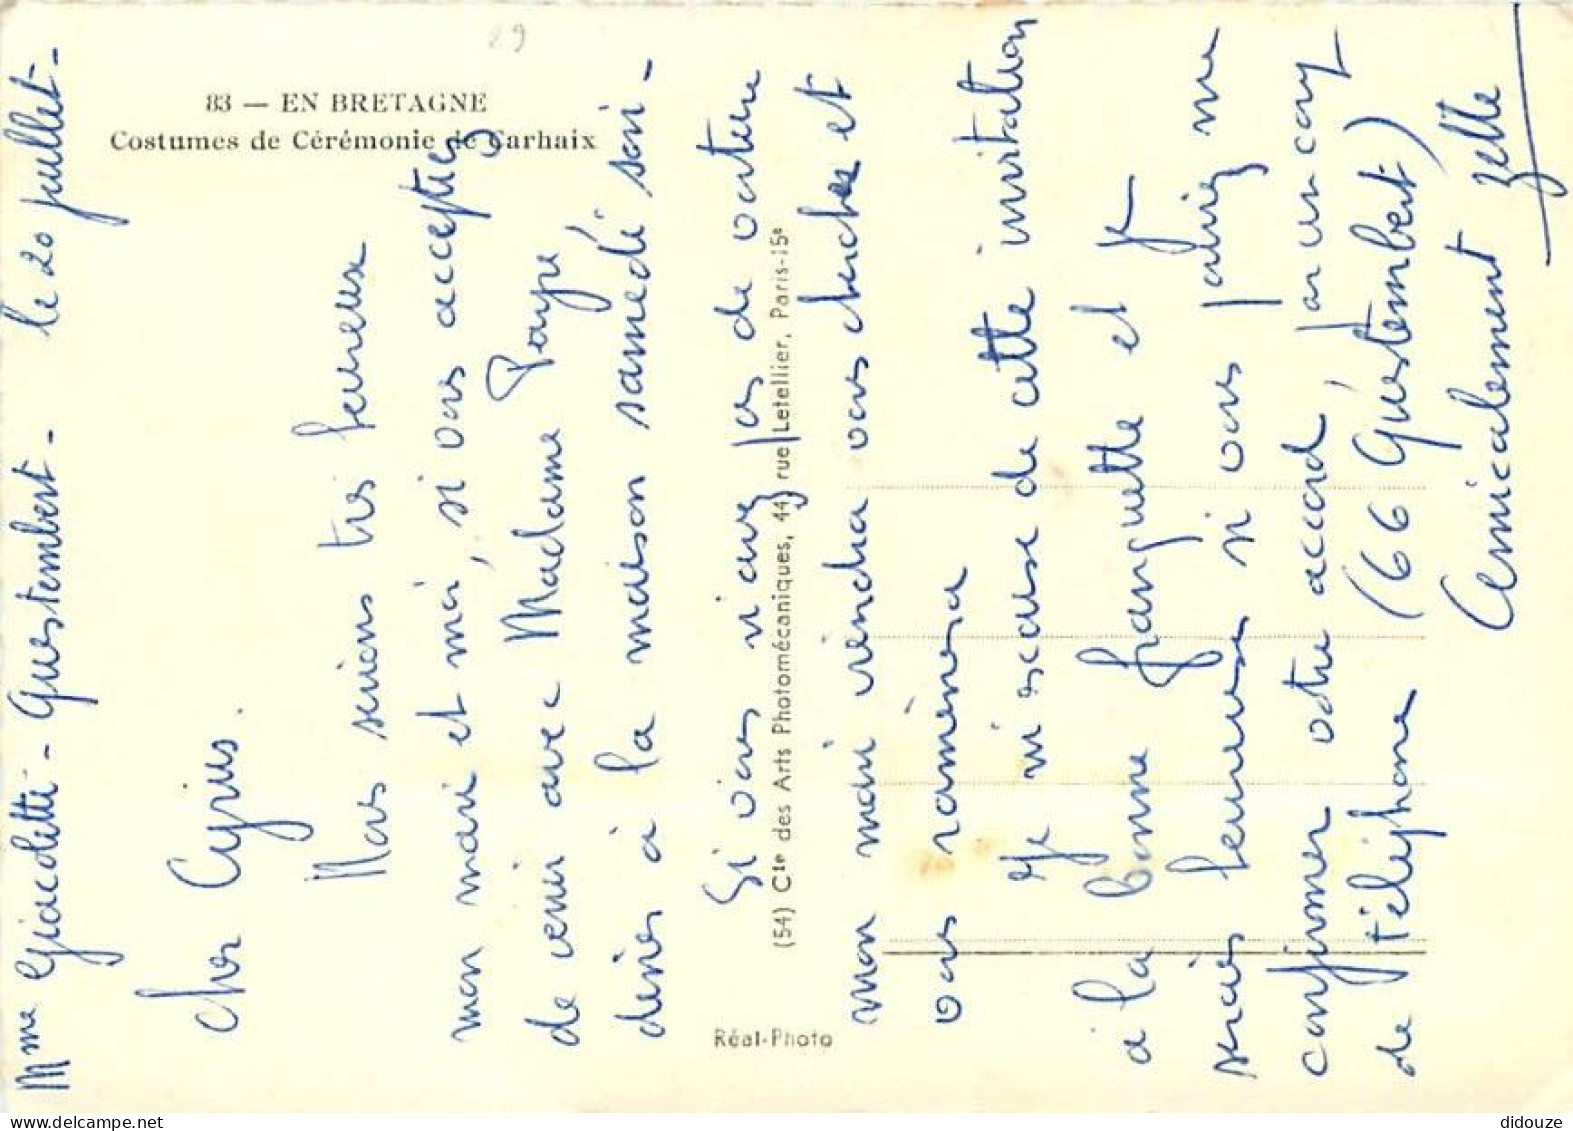 29
83 — EN BRETAGNE
Costumes de Cérémonie de Carhaix
Mme Giacoletti - Questembert - le 20 juillet -
Cher Cyrus.
Nous serions très heureux
mon mari et moi, si vous acceptiez
de venir avec Madame
diner à la maison samedi soir -
Si vous n'avez pas de voiture
mon mari viendra vous chercher et
vous ramènera
Je m'excuse de cette invitation
à la bonne franquette et je
serais heureuse si vous pouviez me
confirmer votre accord, par un coup
de téléphone (66 Questembert)
Amicalement Zette
Réal-Photo
(54) Cie des Arts Photomécaniques, 44, rue Letellier, Paris-15e
didouze